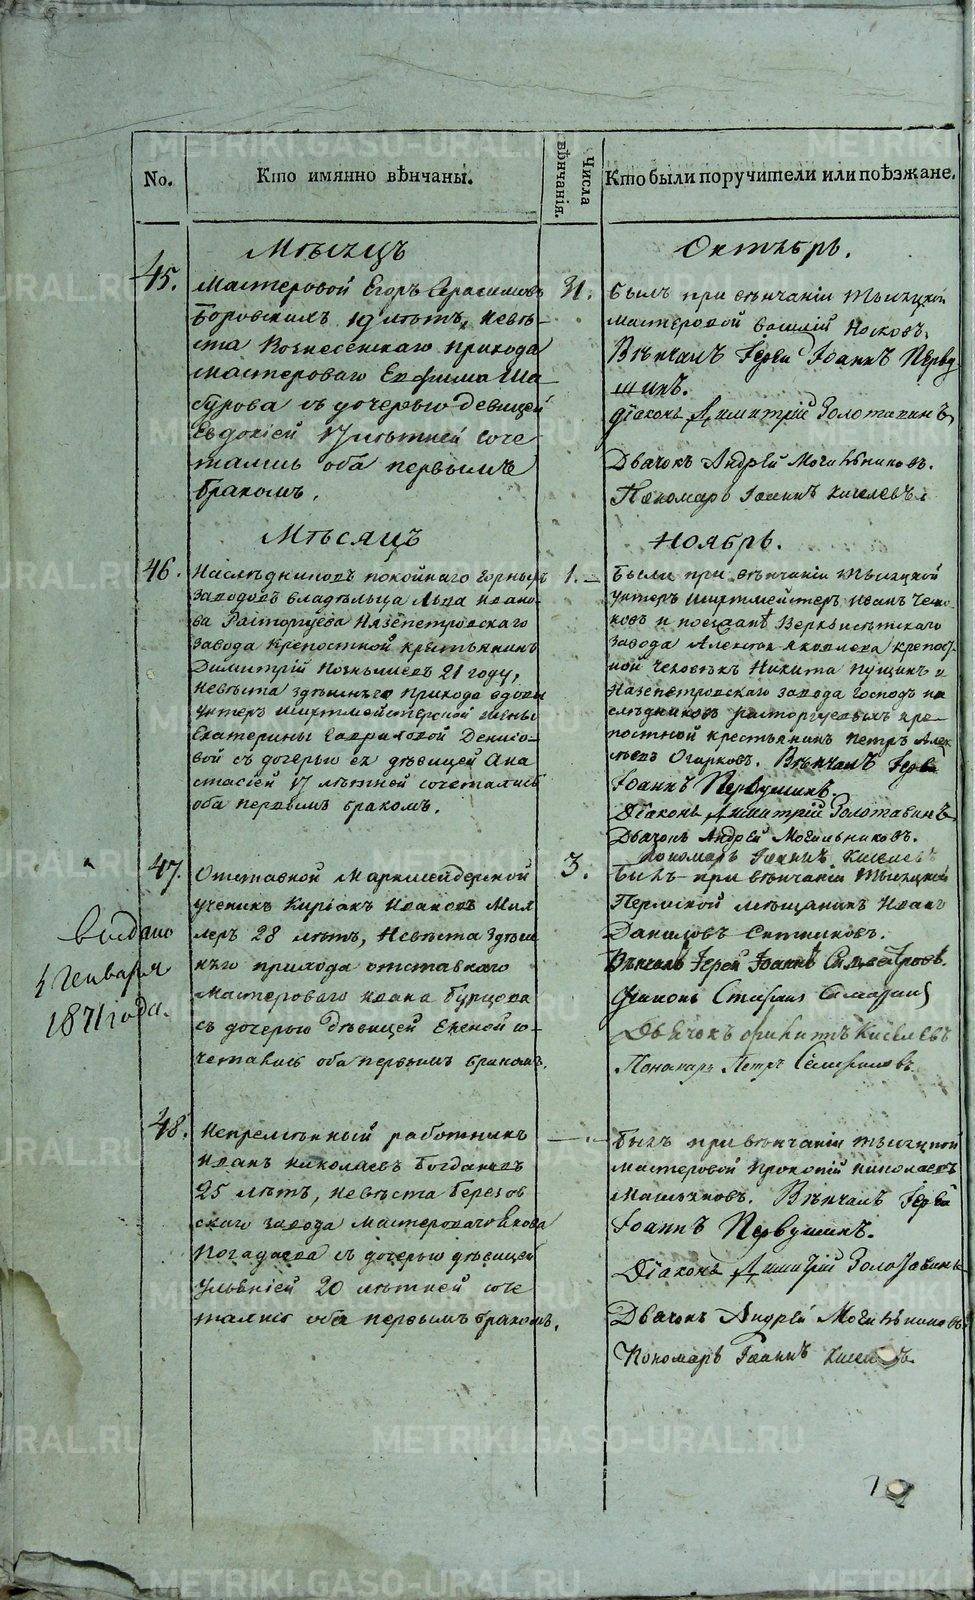 No.
Кто имянно вѣнчаны.
Числа вѣнчанія.
Кто были поручители или поѣзжане.
Мѣсяцъ
Октябрь.
45.
Мастеровой Егоръ Герасимовъ
Боровскихъ 19 лѣтъ, невѣ-
ста Вознесенскаго прихода
мастероваго Ефима Ша-
съ дочерью девицей
Евдокіей 17 лѣтней соче
тались оба первымъ
бракомъ.
31.
Былъ при вѣнчаніи Мысецкой
мастеровой Василій Носковъ.
Вѣнчалъ Іерей Іоаннъ Перву
шинъ.
Діаконъ Димитрій Золотавинъ
Дьячокъ Андрей Могильниковъ.
Пономарь Іоаннъ Киселевъ.
Мѣсяцъ
Ноябрь.
46.
Наслѣдниковъ покойнаго горныхъ
заводовъ владѣльца Льва Ивано-
ва Расторгуева Нязепетровскаго
завода крепостной крестьянинъ
Димитрій 21 году,
Невѣста здѣшнего прихода вдовы
унтеръ шихтмейстерской жены
Екатерины Гавриловой Денисо-
вой съ дочерью ея дѣвицей Ана
стасіей 17 лѣтней сочетались
оба первымъ бракомъ.
1.
Были при вѣнчаніи
унтеръ шихтмейстеръ Иванъ
и поезжанѣ Верхъисетскаго
завода Алексея Яковлева крепост-
ной человѣкъ Никита Пущинъ и
Назепетровскаго завода господъ на
слѣдниковъ расторгуевыхъ кре-
постной крестьянинъ Петръ Алек
Огарковъ. Вѣнчалъ Іерей
Іоаннъ Первушинъ.
Діаконъ Димитрій Золотавинъ
Дьячокъ Андрей Могильниковъ.
Пономарь Іоаннъ Киселевъ
47.
Отставной Маркшейдерской
ученикъ Киріакъ Ивановъ Мил
леръ 28 лѣтъ, Невѣста здѣш
няго прихода отставнаго
Мастероваго Ивана Бурцова
съ дочерью дѣвицей Еленой со-
четались оба первымъ бракомъ.
3.
Былъ при вѣнчаніи
Пермской мѣщанинъ Иванъ
Даниловъ Ситниковъ.
Вѣнчалъ Іерей Іоаннъ
Діаконъ Стефанъ
Дьячокъ Филипъ Киселевъ
Пономарь Петръ
выдано
4 Генваря
1871 года.
48.
Непремѣнный работникъ
Иванъ Николаевъ Богдановъ
25 лѣтъ, невѣста Березов
скаго завода мастероваго Якова
Погадаева съ дочерью дѣвицей
20 лѣтней соче
тались оба первымъ бракомъ.
Былъ при вѣнчаніи
мастеровой Прокопій Николаевъ
Вѣнчалъ Іерей
Іоаннъ Первушинъ.
Діаконъ Димитрій Золотавинъ
Дьячокъ Андрей Могильниковъ
Пономарь Іоаннъ Киселевъ
METRIKI.GASO-URAL.RU